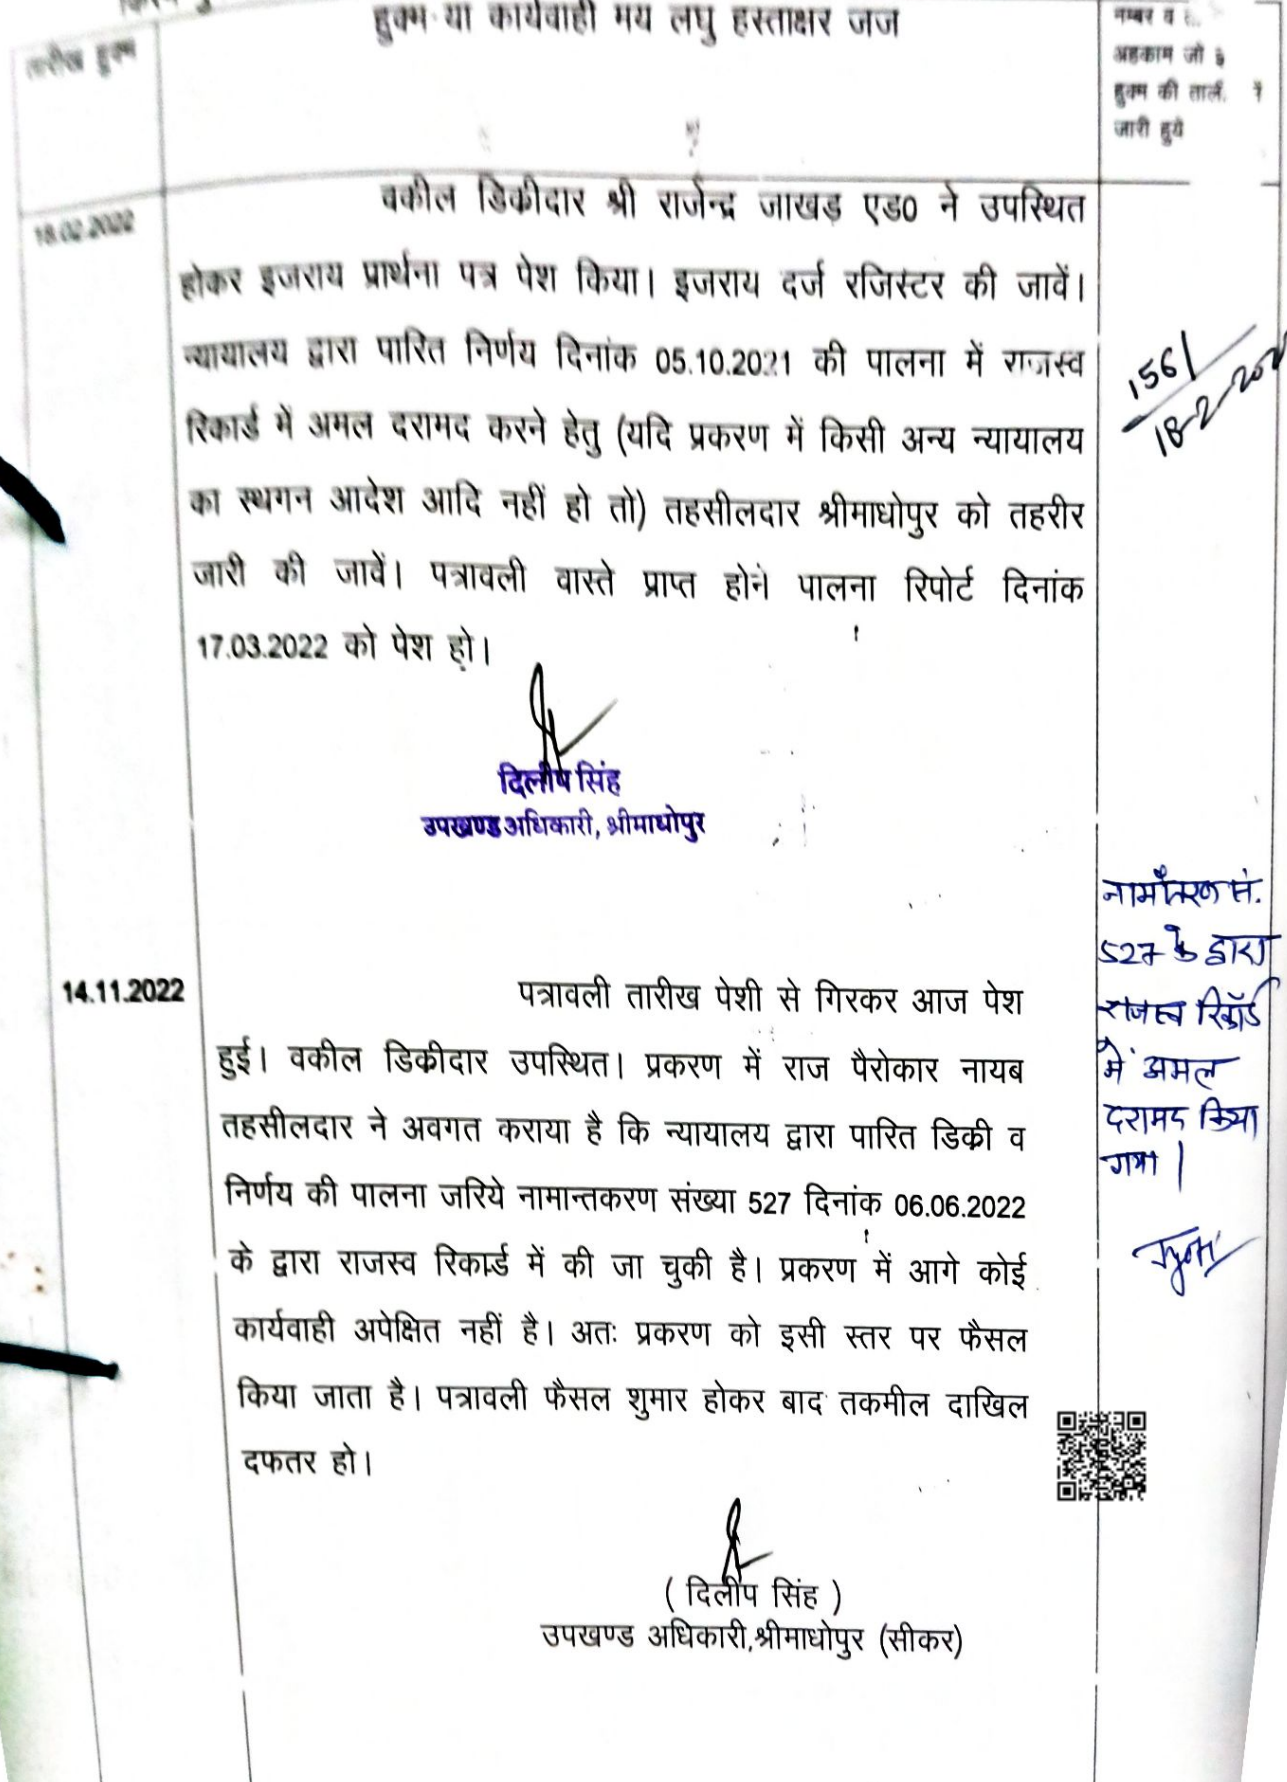 हुक्म या कार्यवाही मय लघु हस्ताक्षर जज
तारीख हुक्म
नम्बर व
अहकाम जो
हुक्म की
जारी हुये
18.02.2022
वकील डिक्रीदार श्री राजेन्द्र जाखड़ एड0 ने उपस्थित
होकर इजराय प्रार्थना पत्र पेश किया। इजराय दर्ज रजिस्टर की जावें।
न्यायालय द्वारा पारित निर्णय दिनांक 05.10.2021 की पालना में राजस्व
रिकार्ड में अमल दरामद करने हेतु (यदि प्रकरण में किसी अन्य न्यायालय
का स्थगन आदेश आदि नहीं हो तो) तहसीलदार श्रीमाधोपुर को तहरीर
जारी की जावें। पत्रावली वास्ते प्राप्त होने पालना रिपोर्ट दिनांक
17.03.2022 को पेश हो।
1561
18-2-202
दिलीप सिंह
उपखण्ड अधिकारी, श्रीमाधोपुर
14.11.2022
पत्रावली तारीख पेशी से गिरकर आज पेश
हुई। वकील डिक्रीदार उपस्थित। प्रकरण में राज पैरोकार नायब
तहसीलदार ने अवगत कराया है कि न्यायालय द्वारा पारित डिक्री व
निर्णय की पालना जरिये नामान्तकरण संख्या 527 दिनांक 06.06.2022
के द्वारा राजस्व रिकार्ड में की जा चुकी है। प्रकरण में आगे कोई
कार्यवाही अपेक्षित नहीं है। अतः प्रकरण को इसी स्तर पर फैसल
किया जाता है। पत्रावली फैसल शुमार होकर बाद तकमील दाखिल
दफतर हो।
नामांतरण सं.
527 के द्वारा
राजस्व रिकॉर्ड
में अमल
दरामद किया
गया।
( दिलीप सिंह )
उपखण्ड अधिकारी,श्रीमाधोपुर (सीकर)